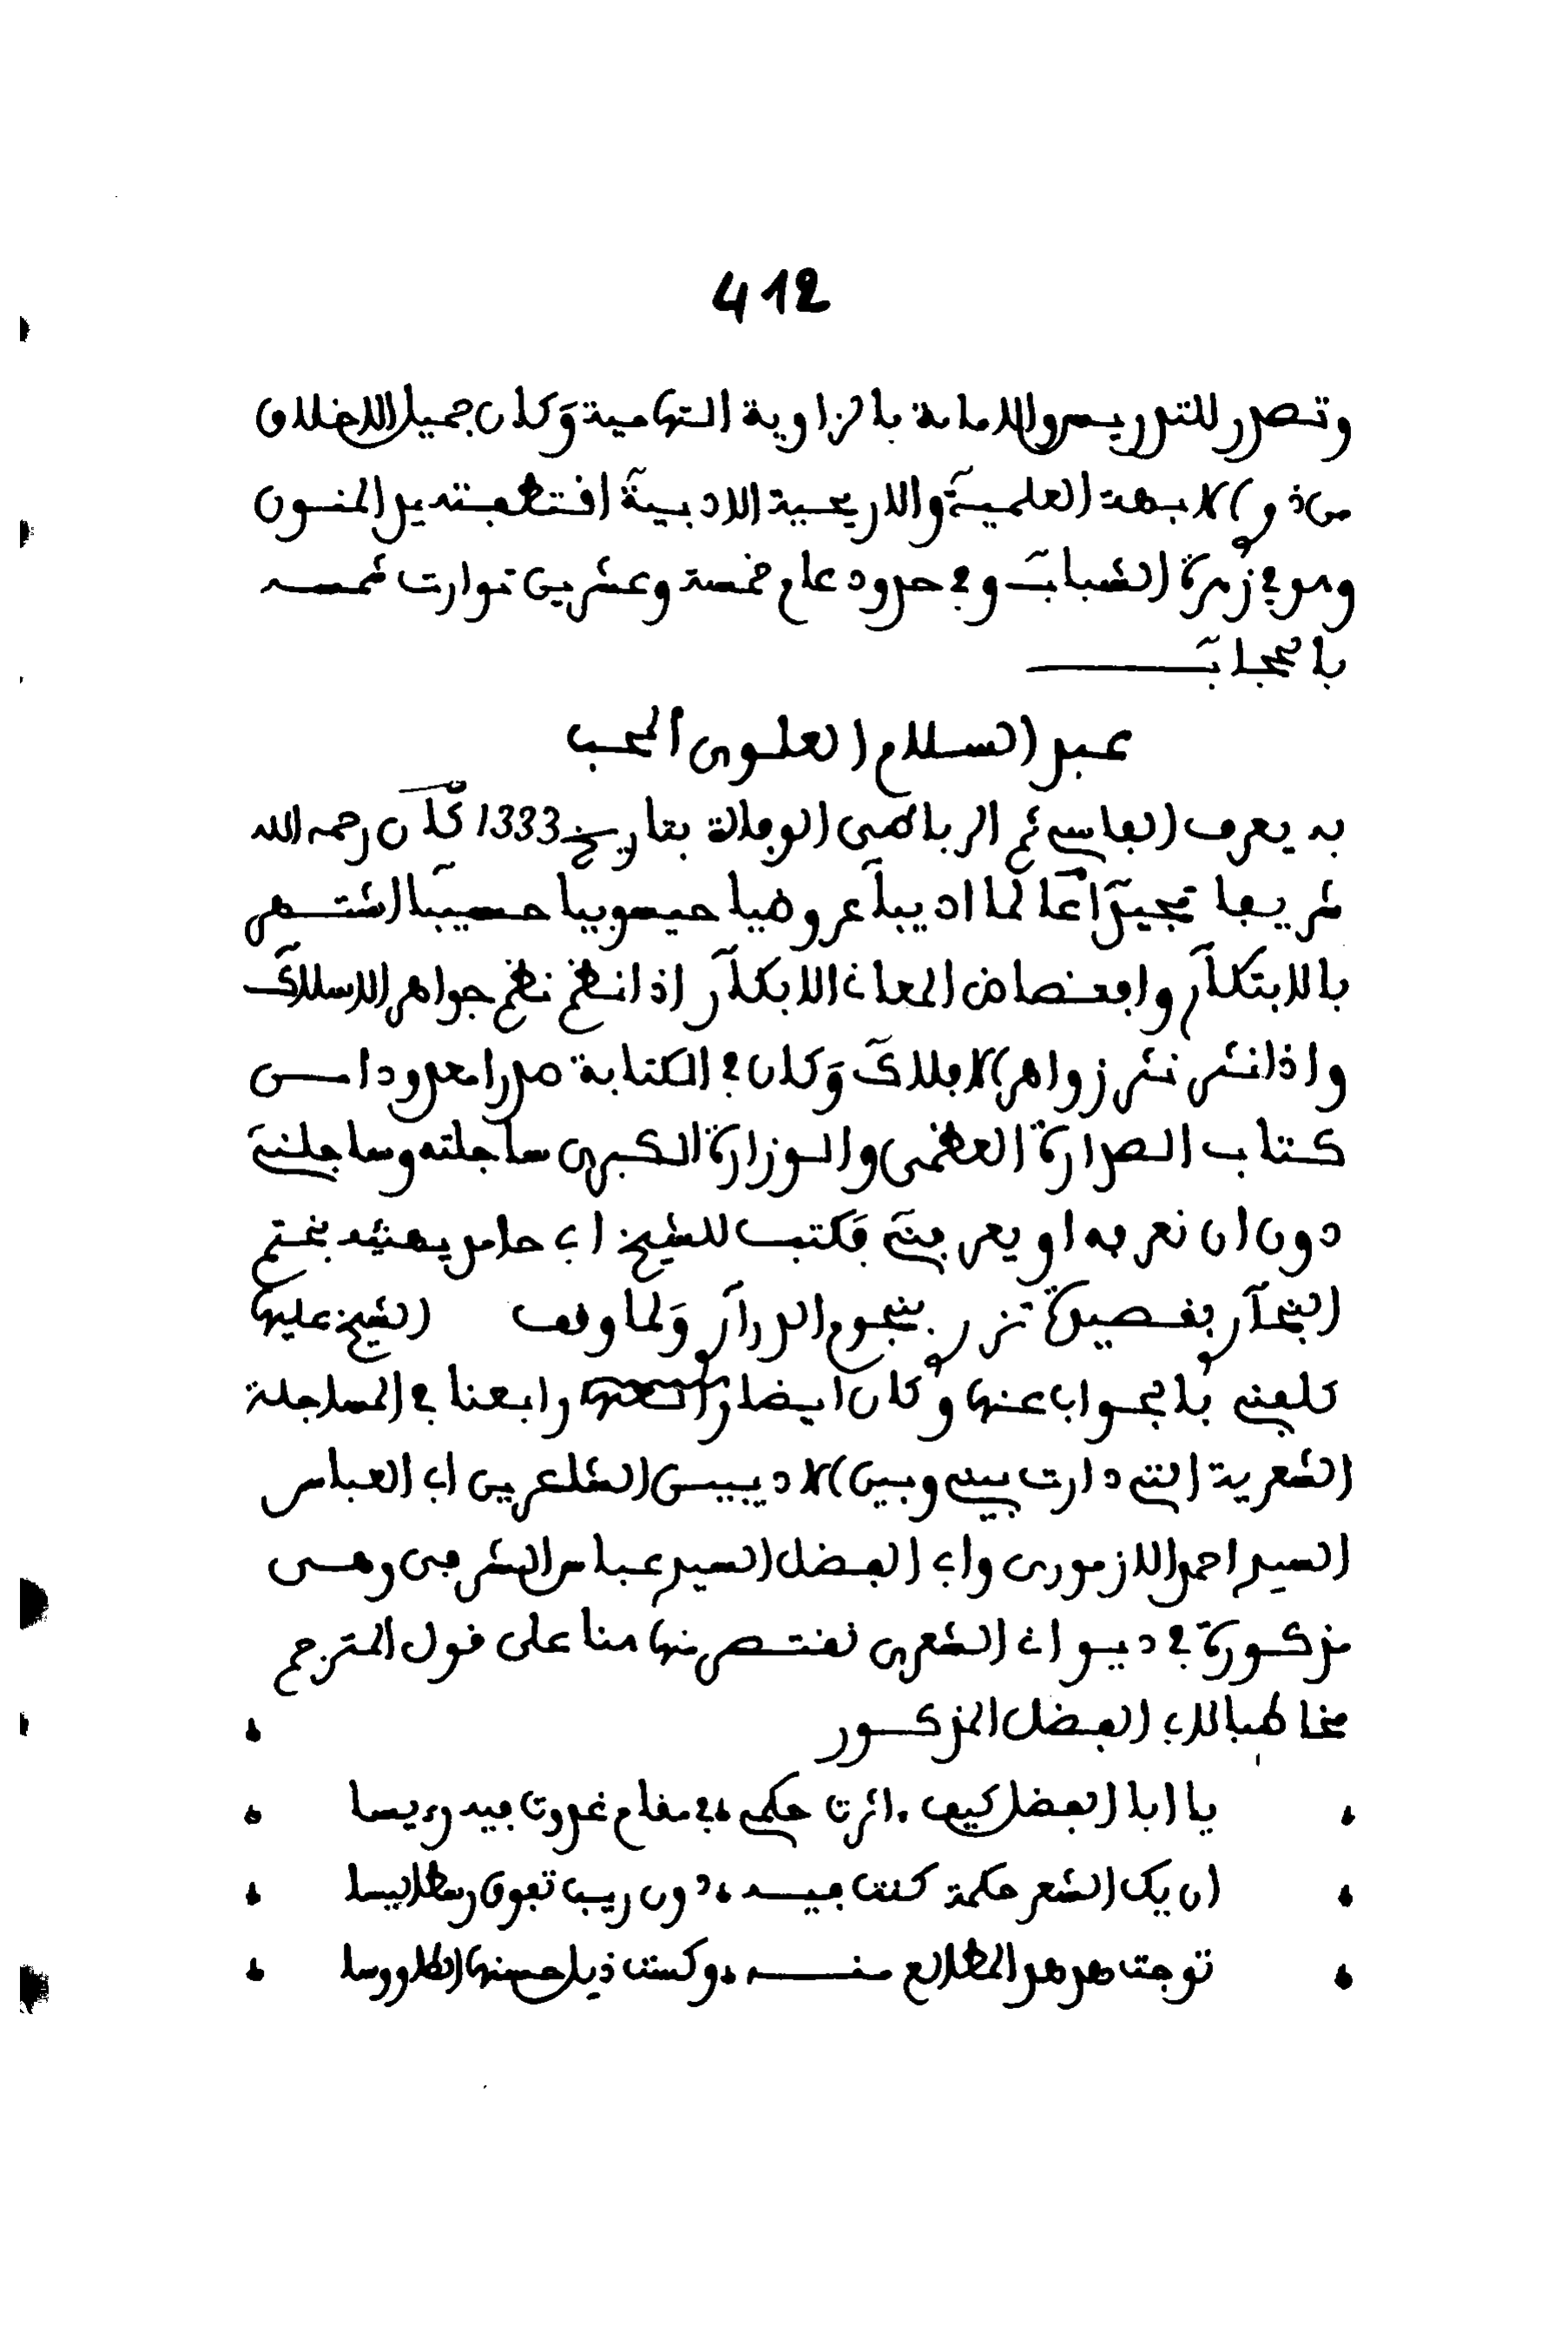 412
وتصدر للتدريس والامامة بالزاوية التهامية وكان جميل الاخلاق
من ذوي الابهة العلمية والاريحية الادبية اقتطفته يد المنون
وهو في زهرة الشباب وفي حدود عام خمسة وعشرين توارت شمسه
بالحجاب
عبد السلام العلوي المحب
به يعرف الفاسي ثم الرباطي الوفاة بتاريخ 1333 كان رحمه الله
شريفا عالما اديبا عروضيا حيسوبيا حسيبا اشتهر
بالابتكار وافتضاض المعاني الابكار اذا نظم نظم جواهر الاسلاك
واذا نثر نثر زواهر الافلاك وكان في الكتابة صدرا معدودا من
كتاب الصدارة العظمى والوزارة الكبرى ساجلته وساجلني
دون ان نعرفه او يعرفني فكتب للشيخ ابي حامد يهنئه بختم
البخاري بقصيدة تزري بنجوم الدراري ولما وقف الشيخ عليها
كلفني بالجواب عنها وكان ايضا رافعنا في المساجلة
الشعرية التي دارت بيني وبين الاديبين الشاعرين ابي العباس
السيد احمد الازموري وابي الفضل السيد عباس الشرفي وهي
مذكورة في ديواني الشعري نقتصر منها هنا على قول المترجم
مخاطبا لابي الفضل المذكور
يا ابا الفضل كيف اثرت حكمي في مقام غدوت فيه رءيسا
ان يك الشعر حكمة كنت فيه دون ريب تفوق رسطاليسا
توجت هدهد المطالع منه وكست ذيل حسنها الطاووسا